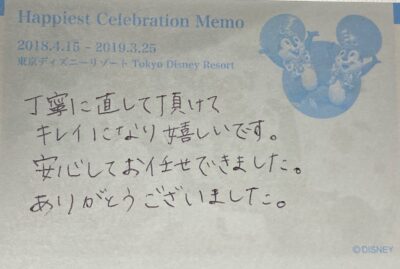 Happiest Celebration Memo
2018.4.15 - 2019.3.25
東京ディズニーリゾート Tokyo Disney Resort
丁寧に直して頂けて
キレイになり嬉しいです。
安心してお任せできました。
ありがとうございました。
©DISNEY